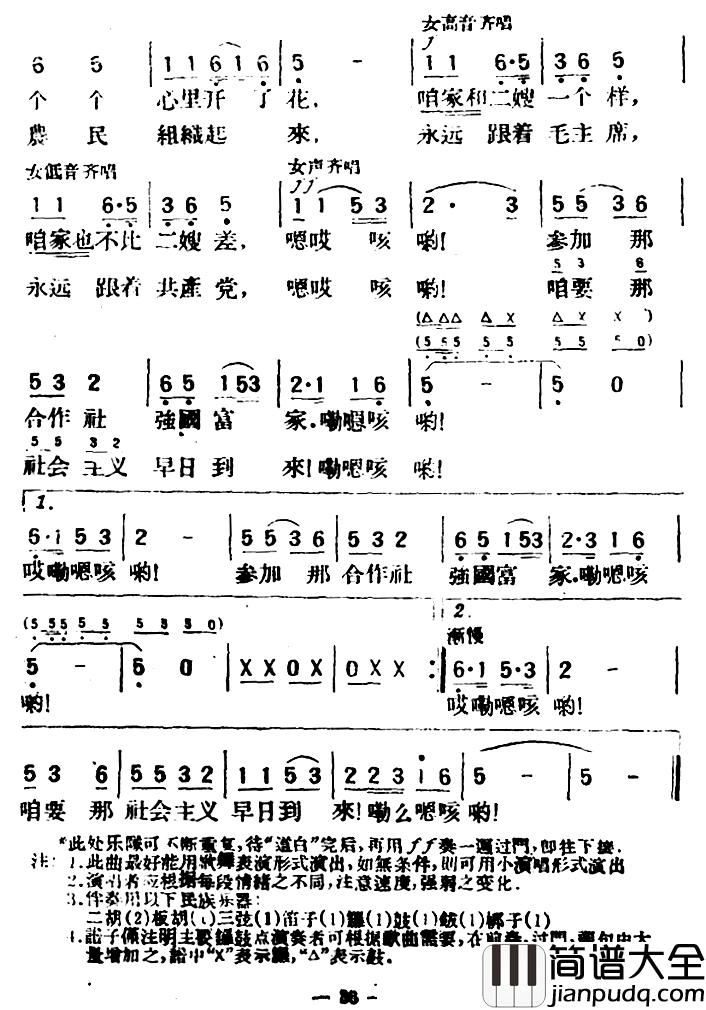 女高音齐唱
6 5 | 1 1 6 1 6 | 5 - | 1 1 6·5 | 3 6 5 |
个个 心里开了花， 咱家和二嫂一个样，
農民 組織起來， 永远跟着毛主席，
女低音齐唱 女声齐唱
ff
1 1 6·5 | 3 6 5 | 1 1 5 3 | 2· 3 | 5 5 3 6 |
咱家也不比二嫂差， 嗯哎咳哟！ 参加那
永远跟着共產党， 嗯哎咳哟！ 咱要那
5 3 6
(△ △△ △ X △ X X )
(5 55 5 5 5 5 5 0)
5 3 2 | 6 5 1 5 3 | 2·1 1 6 | 5 - | 5 0
合作社 強國富家.嘞嗯咳哟！
5 5 3 2
社会主义早日到來！嘞嗯咳哟！
1.
6·1 5 3 | 2 - | 5 5 3 6 | 5 3 2 | 6 5 1 5 3 | 2·3 1 6 |
哎嘞嗯咳哟！ 参加那合作社 強國富家.嘞嗯咳
(5 55 5 5 5 3 3 0)
2.
渐慢
5 - | 5 0 | X X O X | O X X :‖ 6·1 5·3 | 2 - |
哟！ 哎嘞嗯咳哟！
5 3 6 | 5 5 3 2 | 1 1 5 3 | 2 2 3 i 6 | 5 - | 5 - ‖
咱要那社会主义早日到來！嘞么嗯咳哟！
*此处乐隊可不断重复，待“道白”完后，再用ff奏一遍过門，即往下接.
注：1.此曲最好能用歌舞表演形式演出，如無条件，則可用小演唱形式演出
2.演唱者应根据每段情緒之不同，注意速度，强弱之变化.
3.伴奏用以下民族乐器：
二胡(2)板胡(1)三弦(1)笛子(1)鑼(1)鼓(1)鈸(1)梆子(1)
4.譜子僅注明主要鑼鼓点演奏者可根据歌曲需要，在前奏，过門，
量增加之，譜中“X”表示鑼，“△”表示鼓.
— 36 —
简谱大全
jianpudq.com